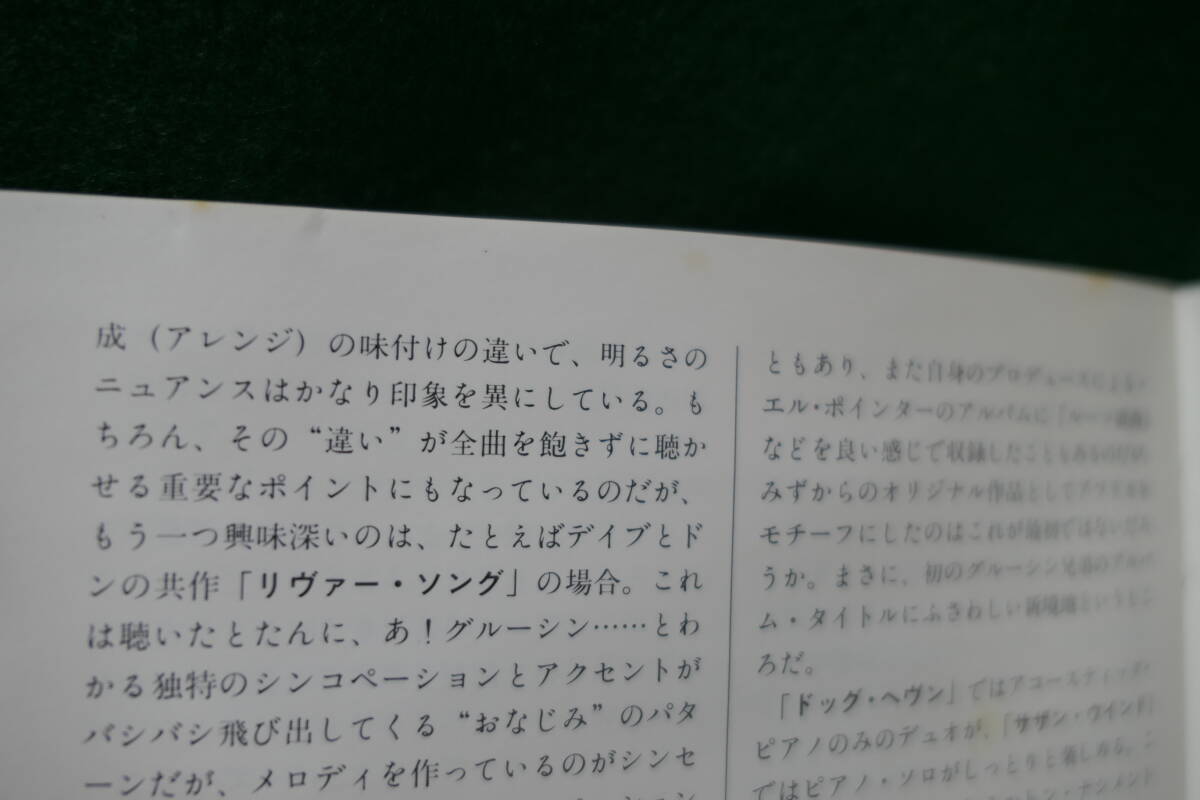 成（アレンジ）の味付けの違いで、明るさの
ニュアンスはかなり印象を異にしている。も
ちろん、その“違い”が全曲を飽きずに聴か
せる重要なポイントにもなっているのだが、
もう一つ興味深いのは、たとえばデイブとド
ンの共作「リヴァー・ソング」の場合。これ
は聴いたとたんに、あ！グルーシン……とわ
かる独特のシンコペーションとアクセントが
バシバシ飛び出してくる“おなじみ”のパタ
ーンだが、メロディを作っているのがシンセ
ともあり、また自身のプロデュースによる
エル・ポインターのアルバムに
などを良い感じで収録したこともあるのだが、
みずからのオリジナル作品として
モチーフにしたのはこれが最初ではないだろ
うか。まさに、初のグルーシン兄弟のアルバ
ム・タイトルにふさわしい新境地というとこ
ろだ。
「ドッグ・ヘヴン」ではアコースティック・
ピアノのみのデュオが、「サザン・ウインド」
ではピアノ・ソロがしっとりと楽しめる。こ